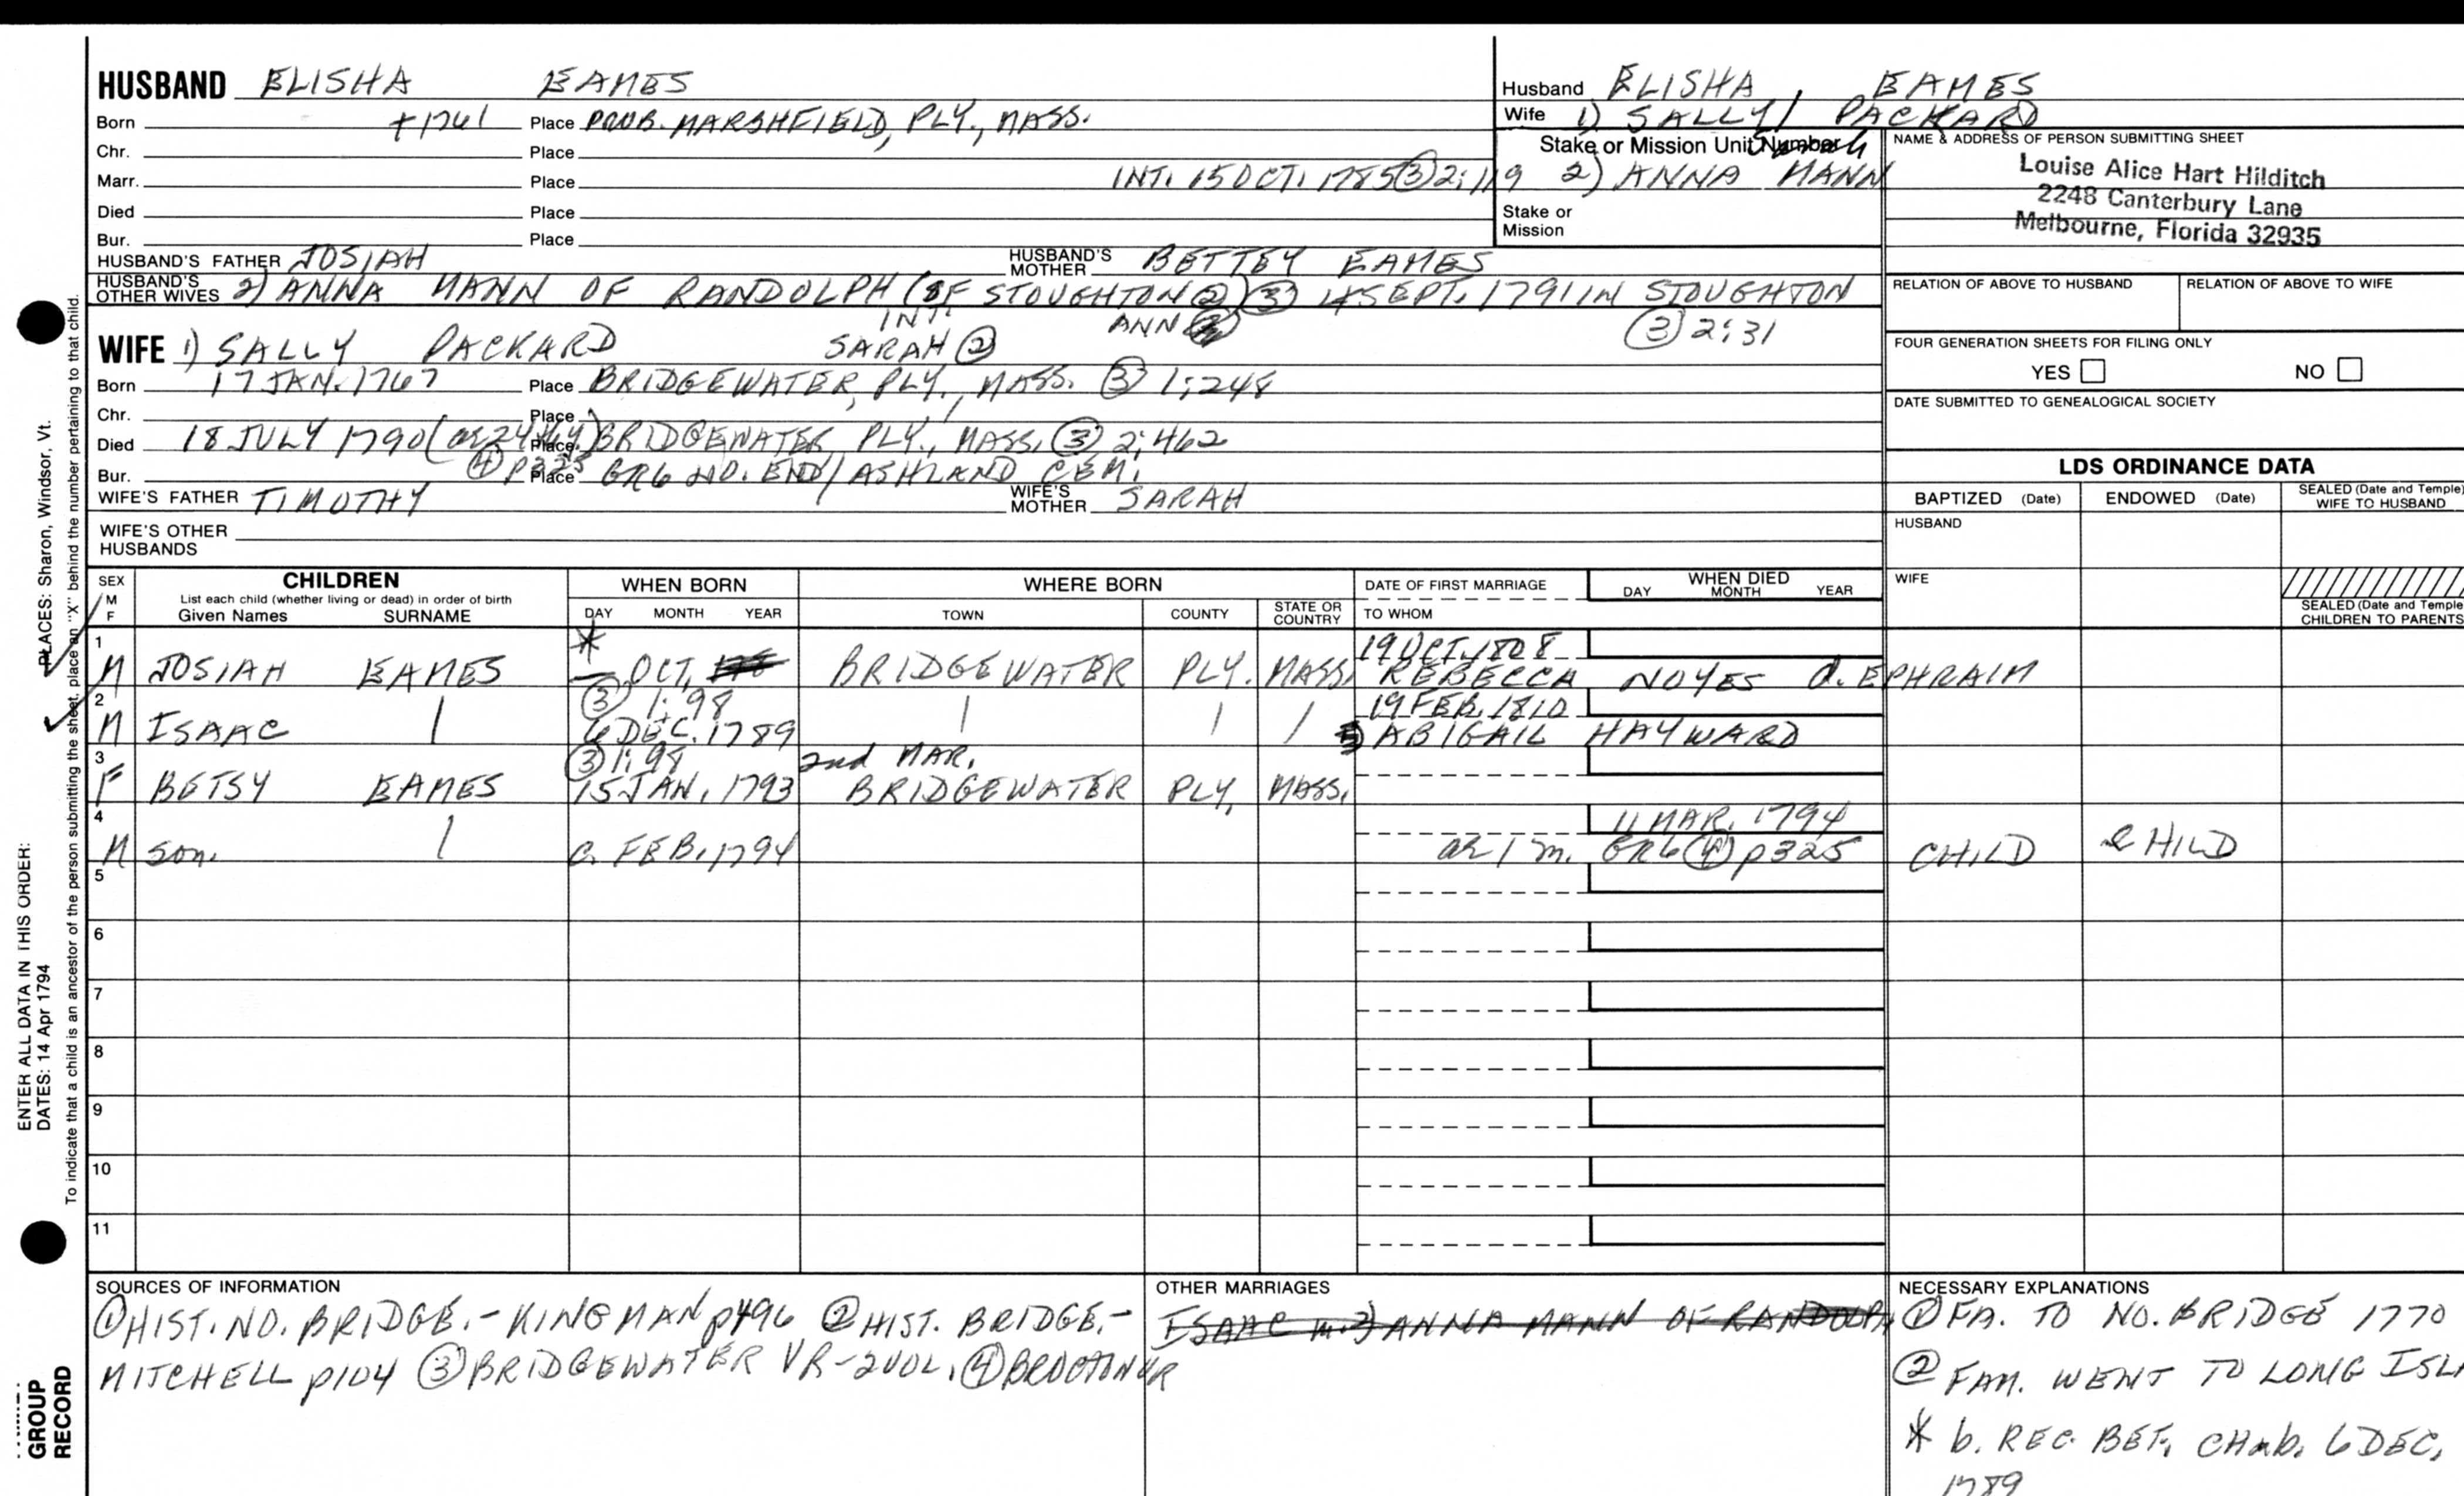 HUSBAND ELISHA EAMES
Born +1761 Place PROB. MARSHFIELD, PLY., MASS.
Chr. Place
Marr. Place INT. 15 OCT. 1785 ③ 2:119
Died Place
Bur. Place
HUSBAND'S FATHER JOSIAH HUSBAND'S MOTHER BETTEY EAMES
HUSBAND'S OTHER WIVES 2) ANNA MANN OF RANDOLPH (OF STOUGHTON ②) ③ SEPT. 1791 IN STOUGHTON
INT. ANN ③ 2:31
WIFE 1) SALLY PACKARD SARAH ②
Born 17 JAN. 1767 Place BRIDGEWATER, PLY., MASS. ③ 1:248
Chr. Place
Died 18 JULY 1790 (ae 24 ) Place BRIDGEWATER PLY., MASS. ③ 2:462
Bur. ④ p325 Place GR6 NO. END/ASHLAND CEM.
WIFE'S FATHER TIMOTHY WIFE'S MOTHER SARAH
WIFE'S OTHER HUSBANDS
Husband ELISHA EAMES
Wife 1) SALLY PACKARD
Stake or Mission Unit Number
2) ANNA MANN
Stake or Mission
NAME & ADDRESS OF PERSON SUBMITTING SHEET
Louise Alice Hart Hilditch
2248 Canterbury Lane
Melbourne, Florida 32935
RELATION OF ABOVE TO HUSBAND RELATION OF ABOVE TO WIFE
FOUR GENERATION SHEETS FOR FILING ONLY
YES NO
DATE SUBMITTED TO GENEALOGICAL SOCIETY
LDS ORDINANCE DATA
BAPTIZED (Date) ENDOWED (Date) SEALED (Date and Temple) WIFE TO HUSBAND
HUSBAND
WIFE
SEALED (Date and Temple) CHILDREN TO PARENTS
SEX M F CHILDREN WHEN BORN WHERE BORN DATE OF FIRST MARRIAGE WHEN DIED
List each child (whether living or dead) in order of birth
Given Names SURNAME DAY MONTH YEAR TOWN COUNTY STATE OR COUNTRY TO WHOM DAY MONTH YEAR
1 * 19 OCT. 1808
M JOSIAH EAMES — OCT. BRIDGEWATER PLY. MASS. REBECCA NOYES d. EPHRAIM
2 ③ 1:98 19 FEB. 1810
M ISAAC 6 DEC. 1789 ABIGAIL HAYWARD
3 ③ 1:98 2nd MAR.
F BETSY EAMES 15 JAN. 1793 BRIDGEWATER PLY. MASS.
4 11 MAR. 1794
M son. c. FEB. 1794 ae 1 m. GR6 ④ p325 CHILD CHILD
5
6
7
8
9
10
11
SOURCES OF INFORMATION
① HIST. NO. BRIDGE. - KINGMAN p496 ② HIST. BRIDGE. -
MITCHELL p104 ③ BRIDGEWATER VR - 2 VOL. ④ BROCTON VR
OTHER MARRIAGES
ISAAC m. 2) ANNA MANN OF RANDOLPH
NECESSARY EXPLANATIONS
① FA. TO NO. BRIDGE 1770
② FAM. WENT TO LONG ISLA
* b. REC. BET. CH & b. 6 DEC,
1789
PLACES: Sharon, Windsor, Vt.
ENTER ALL DATA IN THIS ORDER:
DATES: 14 Apr 1794
To indicate that a child is an ancestor of the person submitting the sheet, place an "X" behind the number pertaining to that child.
GROUP
RECORD